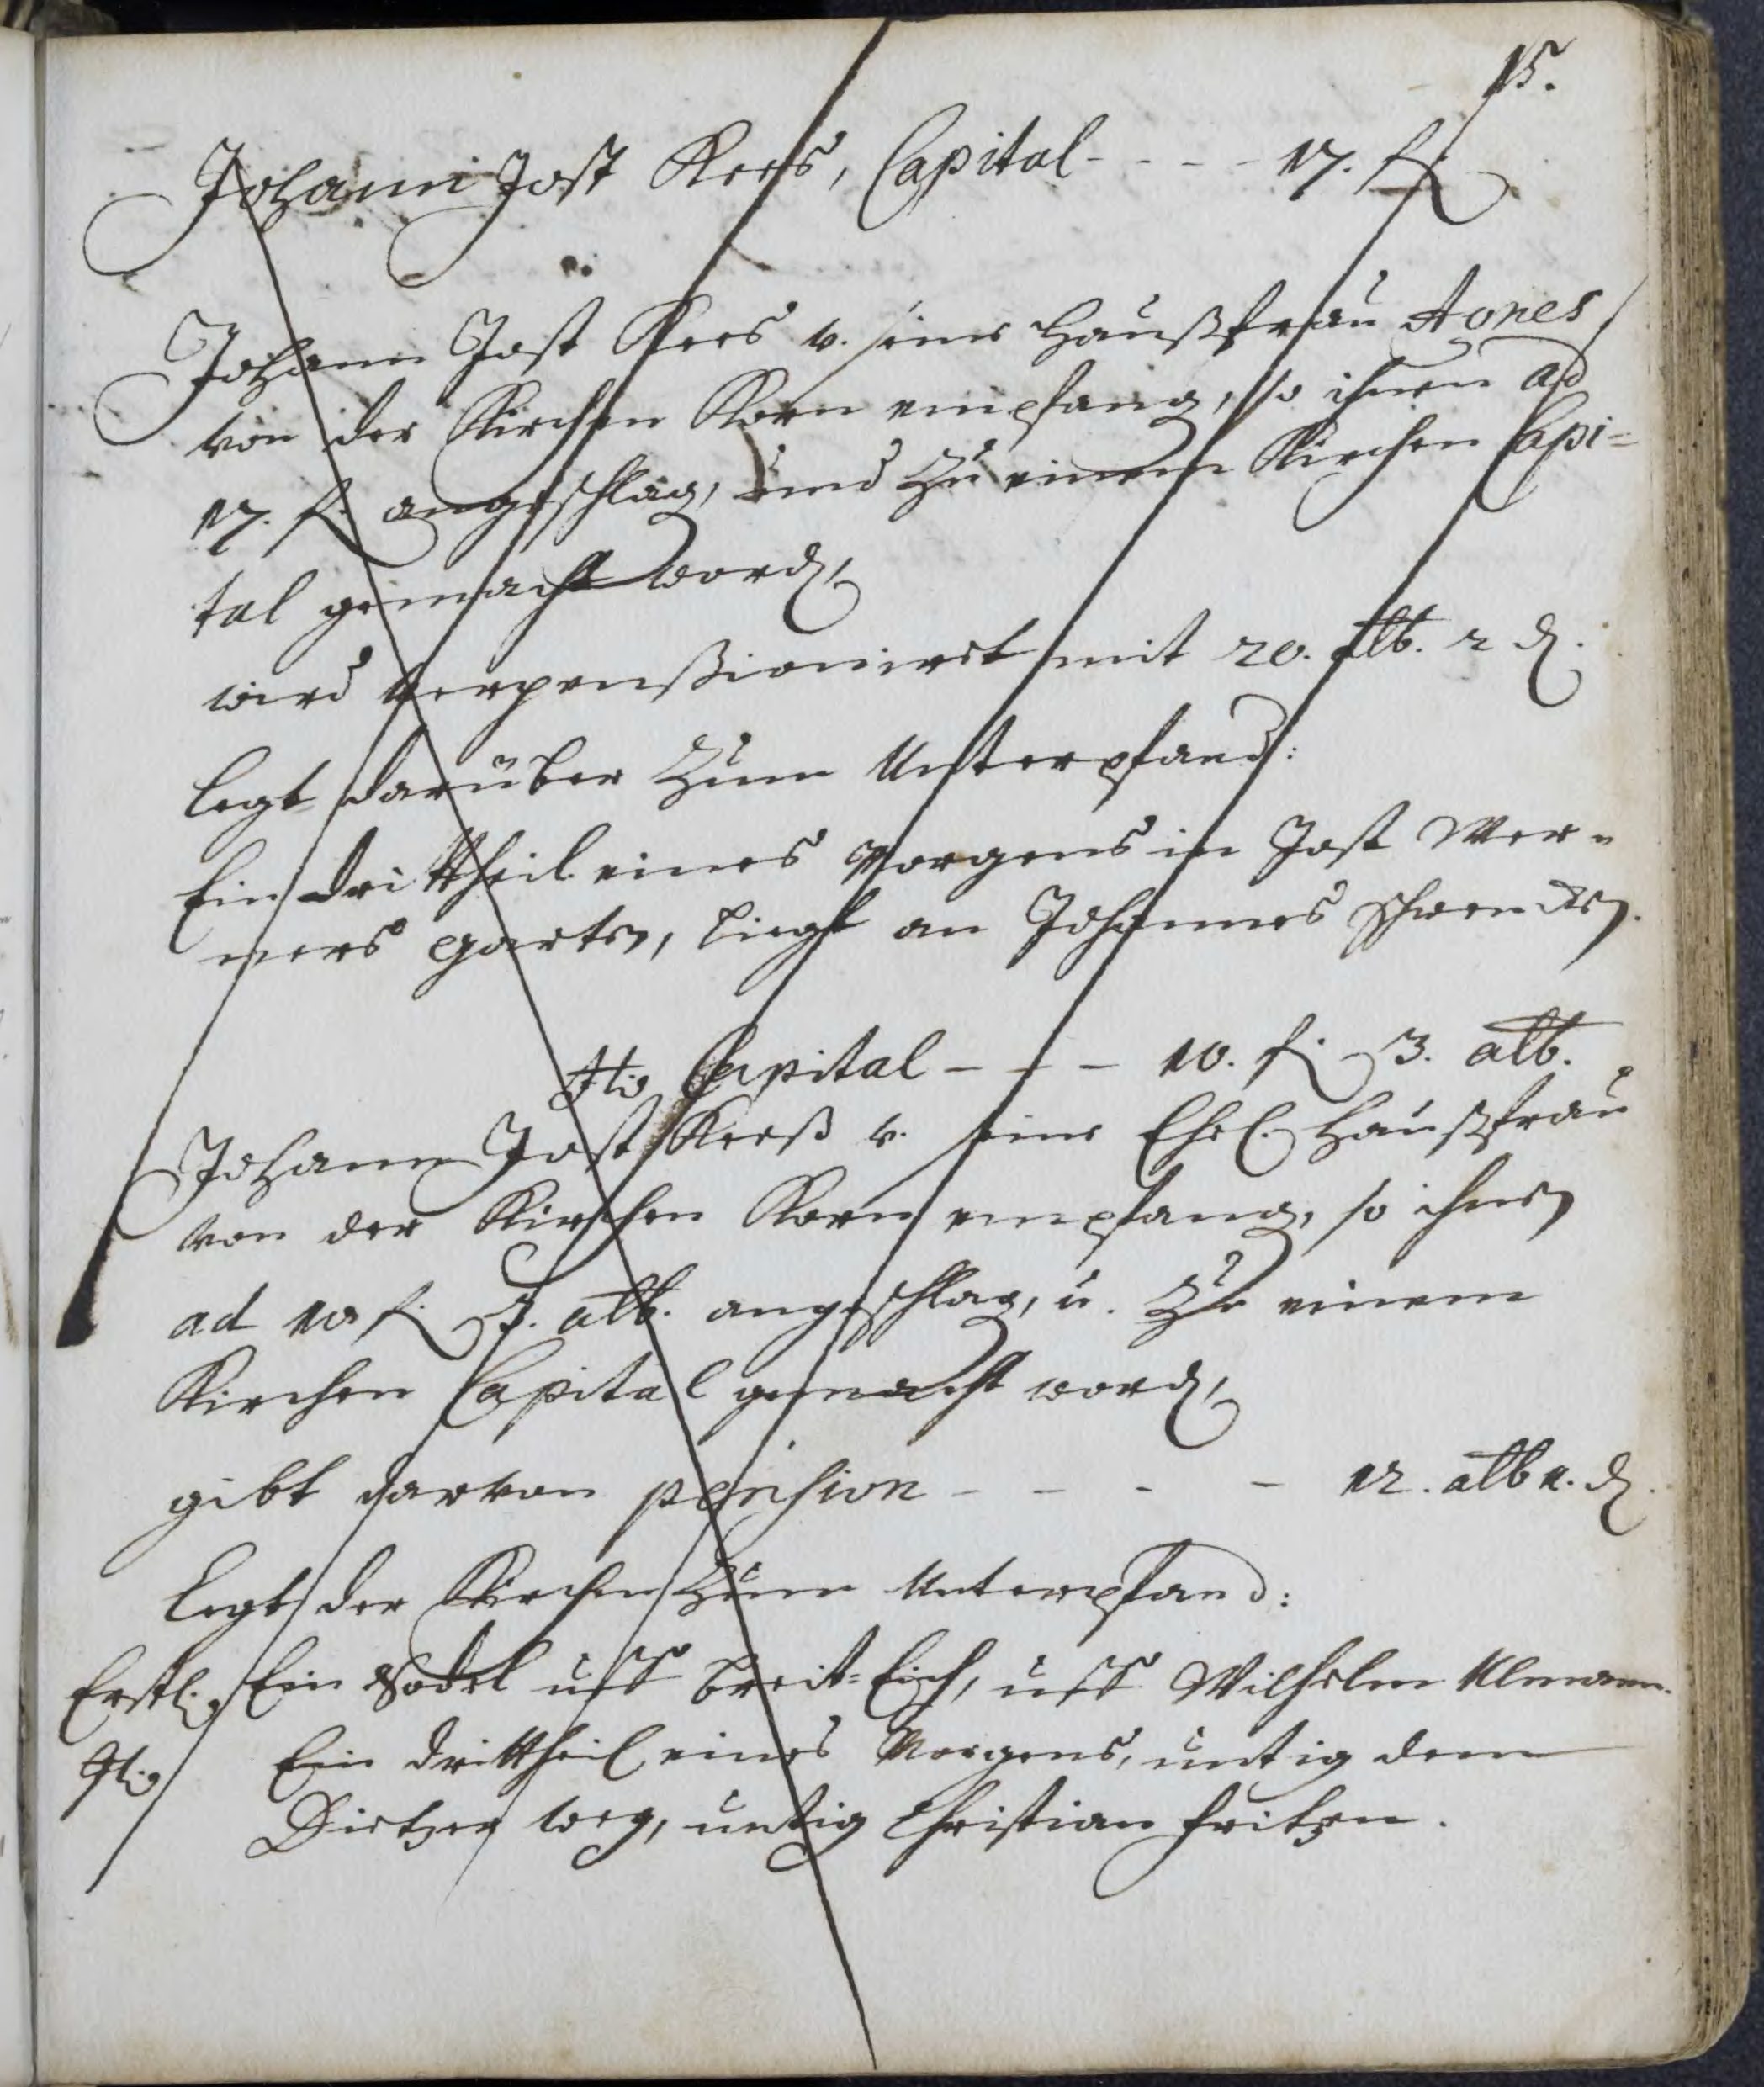 15.
Johann Jost Kees, Capital - - - - 17. fl.
Johann Jost Kees v. seine Haußfrau Agnes
von der Kirchen Korn empfang, so ihnen ad
17. fl. angeschlag, und Zu einem Kirchen Capi=
tal gemacht word,
wird verpenßionirt mit 20. alb. 2 d.
legt darüber Zum Unterpfand:
Ein drittheil eines Morgens in Jost Wer=
ners garten, liegt an Johannes
It. Capital - - - 10. fl. 3. alb.
Johann Jost Keeß v. seine Ehel. Haußfrau
von der Kirchen Korn empfang, so ihnen
ad 10 fl. 3. alb. angeschlag, u. Zu einem
Kirchen Capital gemacht word,
gibt darvon pension - - - - 12. alb 1. d.
legt der Kirchen Zum Unterpfand:
Erstl. Ein Sodel uff breit=Eich, uff Wilhelm Ulmann.
It. Ein drittheil eines Morgens, untig dem
Dietzer weg, untig Christian Fritzen.